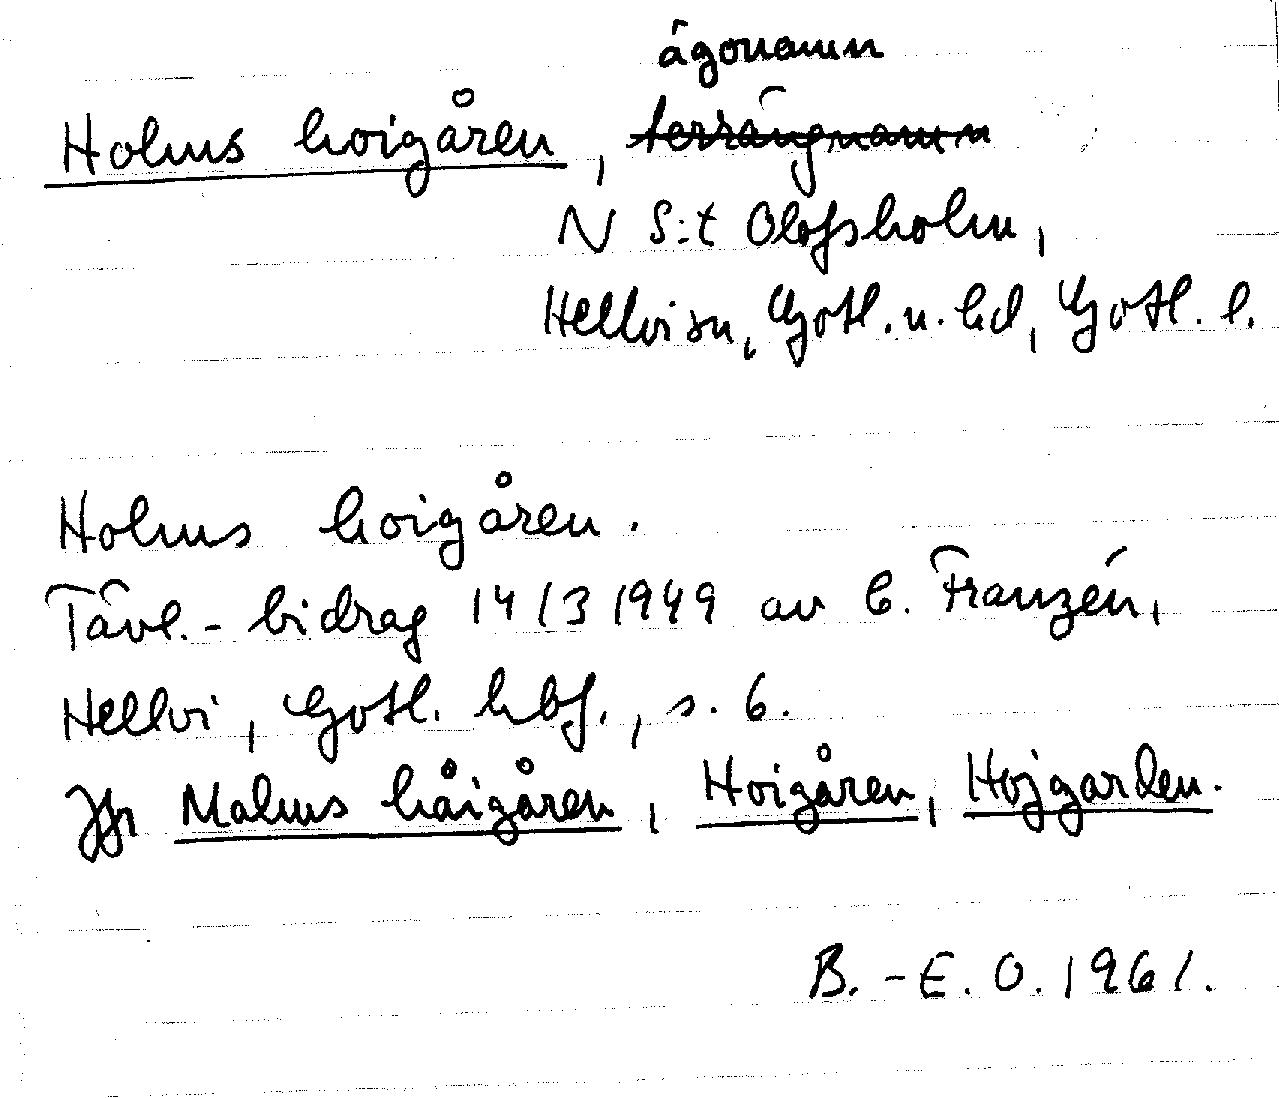 ägonamn
Holms hoigåren, terrängnamn
N S:t Olofsholm,
Hellvi sn, Gotl. n. hd, Gotl. l.
Holms hoigåren.
Tävl.-bidrag 14/3 1949 av C. Franzén,
Hellvi, Gotl. hbf., s. 6.
Jfr Malms håigåren, Hoigåren, Hojgarden.
B.-E. O. 1961.